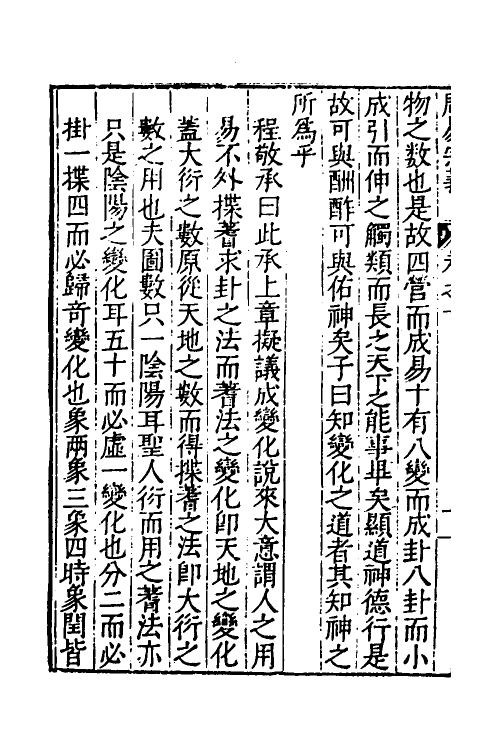 物之数也是故四營而成易十有八變而成卦八卦而小
成引而伸之觸類而長之天下之能事畢矣顯道神德行是
故可與酬酢可與佑神矣子曰知變化之道者其知神之
所爲乎
程敬承曰此承上章擬議成變化說來大意謂人之用
易不外揲蓍求卦之法而蓍法之變化卽天地之變化
蓋大衍之數原從天地之數而得揲蓍之法卽大衍之
數之用也夫圖數只一陰陽耳聖人衍而用之蓍法亦
只是陰陽之變化耳五十而必虛一變化也分二而必
掛一揲四而必歸奇變化也象兩象三象四時象閏皆